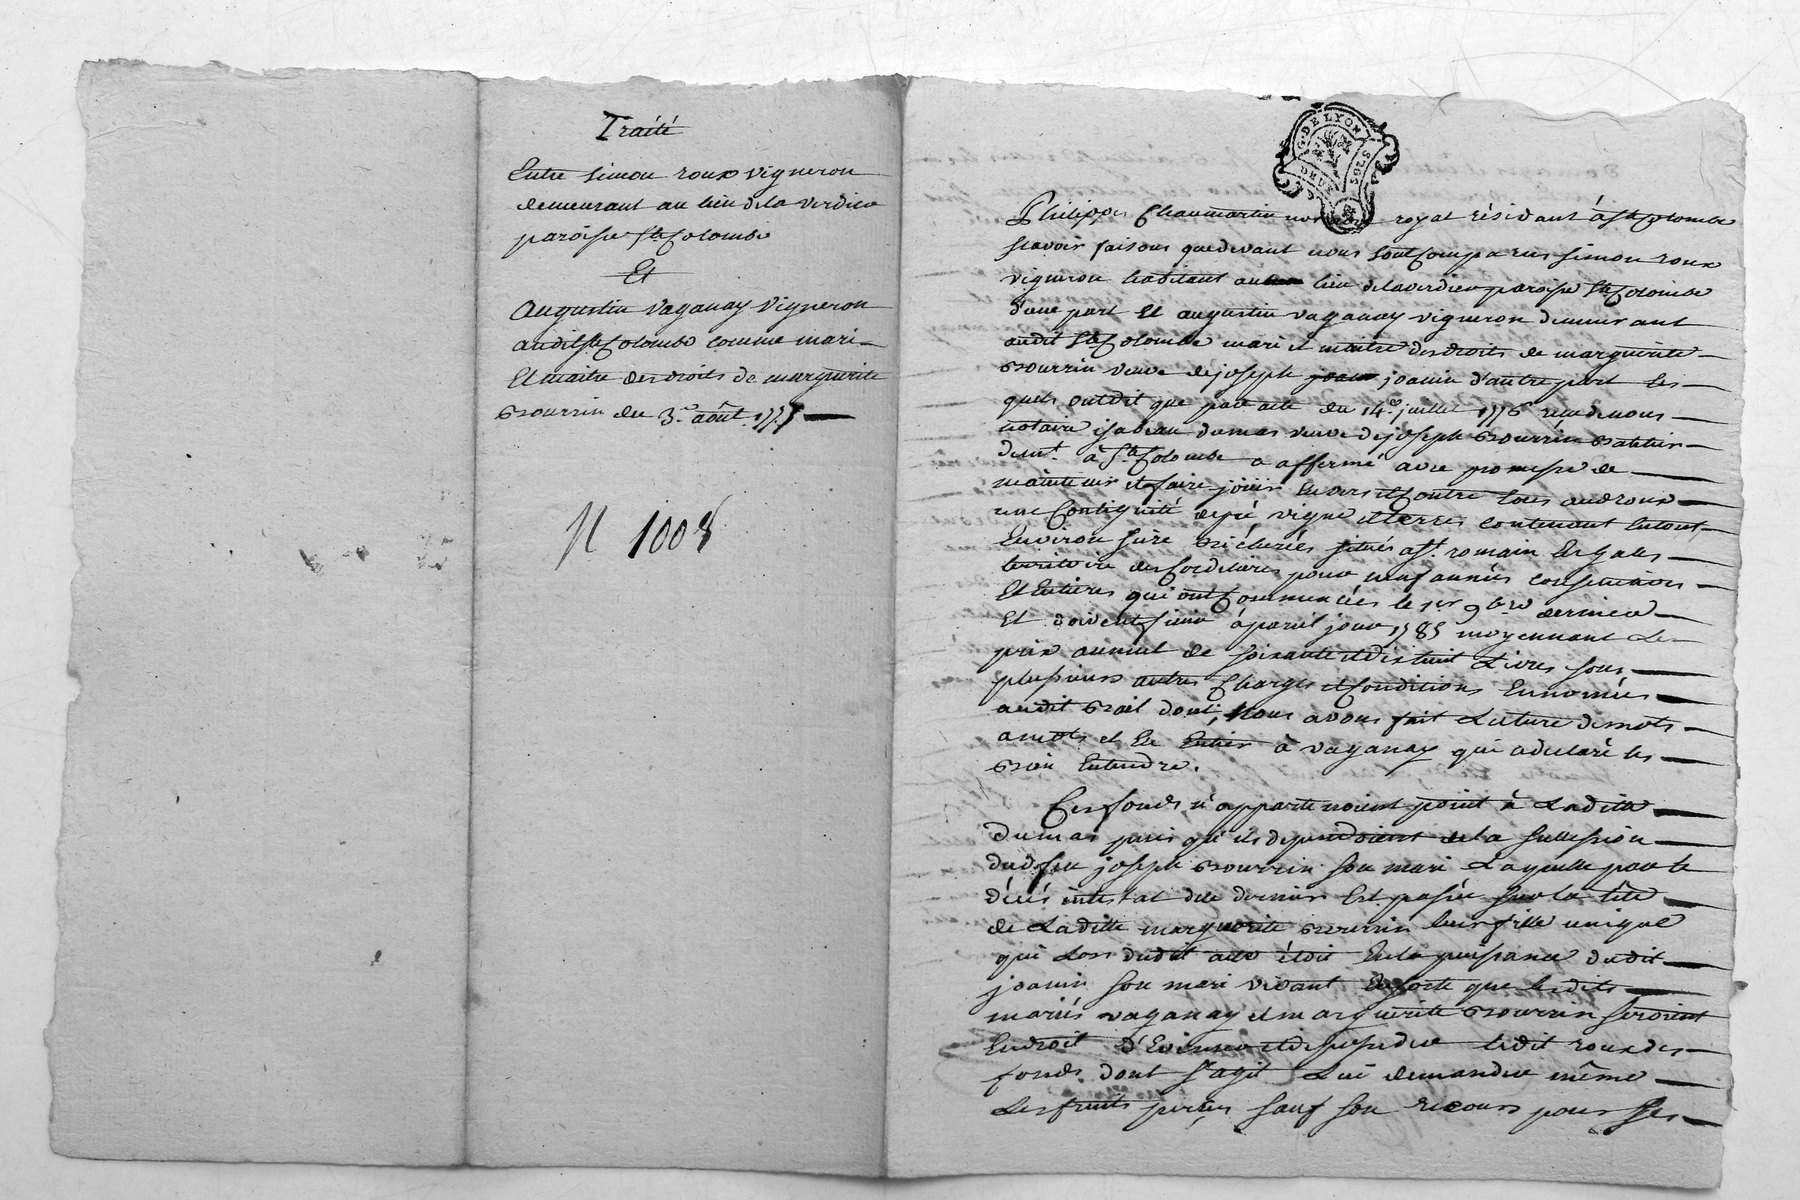 Traité
Entre simon roux vigneron
demeurant au lieu dela verdieu
paroisse Ste Colombe
Et
augustin vaganay vigneron
audit Ste Colombe comme mari
Et maitre des droits de marguerite
Bourrin du 3e août
N 1008
G. DE LYON
DEUX SOLS
Philippes Chaumartin royal résidant à Ste Colombe
scavoir faisons que devant nous sont Comparus simon roux
vigneron habitant au lieu dela verdieu paroisse Ste Colombe
d'une part Et augustin vaganay vigneron demeurant
audit Ste Colombe mari et maitre des droits de marguerite
Bourrin veuve de joseph joanin d'autre part les
quels ont dit que par acte du 14e juillet 1776 reçu de nous
notaire isabeau dumas veuve de joseph Bourrin
demt. à Ste Colombe a affermé avec promesse de
maintenir et faire joüir Envers et Contre tous audroux
une Contiguité de vigne et terres contenant Entout
Environ situés a St. romain En gales
territoire des Cordeliers pour neuf années consecutives
Et Entieres qui ont Commencées le 1er 9bre dernier
Et doivent finir à pareil jour 1785 moyennant Le
prix annuel de soixante et dix huit Livres sous
plusieurs autres Charges et Conditions Ennoncées
audit Bail dont, Nous avons fait Lecture de mots
amots et En Entier à vaganay qui a declaré les
Bien Entendre.
Ces fonds n'appartenoient point à Laditte
dumas puis qu'ils dependoient de la succession
dud. feu joseph Bourrin son mari Laquelle par le
décés intestat de ce dernier Est passée sur la tête
de Laditte marguerite Bourrin leur fille unique
qui Lors dudit acte étoit En la puissance dudit
joanin son mari vivant Ensorte que lesdits
mariés vaganay et marguerite Bourrin seroient
Endroit d'Evincer et deposseder ledit roux des
fonds dont s'agit Lui demander même
Les fruits perçus sauf son recours pour ses